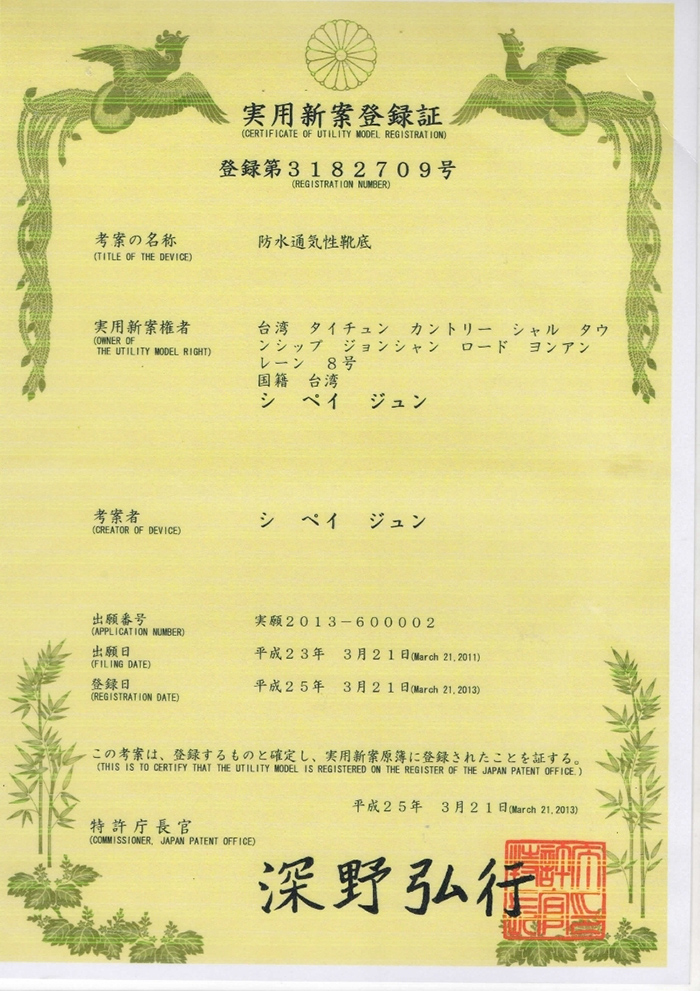 実用新案登録証
(CERTIFICATE OF UTILITY MODEL REGISTRATION)
登録第3182709号
(REGISTRATION NUMBER)
考案の名称 防水通気性靴底
(TITLE OF THE DEVICE)
実用新案権者 台湾 タイチュン カントリー シャル タウ
(OWNER OF ンシップ ジョンシャン ロード ヨンアン
THE UTILITY MODEL RIGHT) レーン 8号
国籍 台湾
シ ペイ ジュン
考案者 シ ペイ ジュン
(CREATOR OF DEVICE)
出願番号 実願2013-600002
(APPLICATION NUMBER)
出願日 平成23年 3月21日(March 21,2011)
(FILING DATE)
登録日 平成25年 3月21日(March 21,2013)
(REGISTRATION DATE)
この考案は、登録するものと確定し、実用新案原簿に登録されたことを証する。
(THIS IS TO CERTIFY THAT THE UTILITY MODEL IS REGISTERED ON THE REGISTER OF THE JAPAN PATENT OFFICE.)
平成25年 3月21日(March 21,2013)
特許庁長官
(COMMISSIONER, JAPAN PATENT OFFICE)
深野弘行